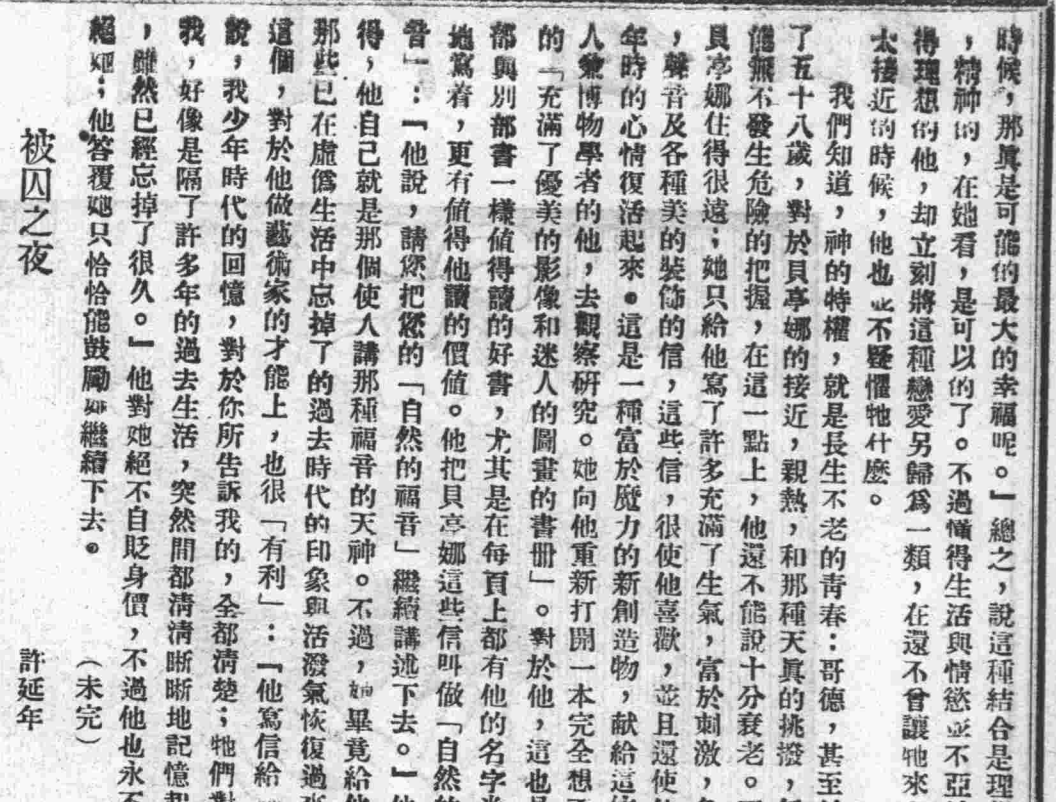 時候，那眞是可能的最大的幸福呢。』總之，說這種結合是理
，精神的，在她看，是可以的了。不過懂得生活與情慾並不亞
得理想的他，却立刻將這種戀愛另歸爲一類，在還不曾讓牠來
太接近的時候，他也並不疑懼牠什麽。
我們知道，神的特權，就是長生不老的青春：哥德，甚至
了五十八歲，對於貝亭娜的接近，親熱，和那種天眞的挑撥，
能無不發生危險的把握，在這一點上，他還不能說十分衰老。
貝亭娜住得很遠；她只給他寫了許多充滿了生氣，富於刺激，
，聲音及各種美的裝飾的信，這些信，很使他喜歡，並且還使
年時的心情復活起來。這是一種富於魔力的新創造物，献給這
人兼博物學者的他，去觀察研究。她向他重新打開一本完全想
的「充滿了優美的影像和迷人的圖畫的書册」。對於他，這也是
部與別部書一樣値得讀的好書，尤其是在每頁上都有他的名字
地寫着，更有値得他讀的價値。他把貝亭娜這些信叫做「自然的
音」：『他說，請您把您的「自然的福音」繼續講述下去。』
得，他自己就是那個使人講那種福音的天神。不過，她畢竟給
那些已在虛僞生活中忘掉了的過去時代的印象與活潑氣恢復過來
這個，對於他做藝術家的才能上，也很「有利」：『他寫信給
說，我少年時代的回憶，對於你所告訴我的，全都清楚；牠們對
我，好像是隔了許多年的過去生活，突然間都清清晰晰地記憶起
，雖然已經忘掉了很久。』他對她絕不自貶身價，不過他也永不
絕她；他答覆她只恰恰能鼓勵她繼續下去。
（未完）
被囚之夜
許延年